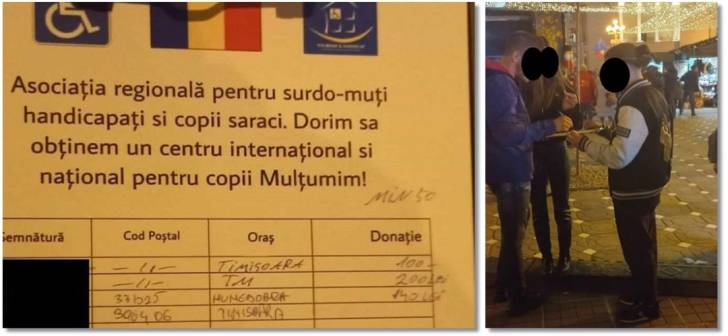 Asociația regională pentru surdo-muți
handicapați si copii saraci. Dorim sa
obținem un centru internațional si
național pentru copii Mulțumim!
MIN 50
Semnătură Cod Poștal Oraș Donație
—„— TIMISOARA 100-
—„— TM 200 LEI
HUNEDOARA 140 LEI
TIMISOARA